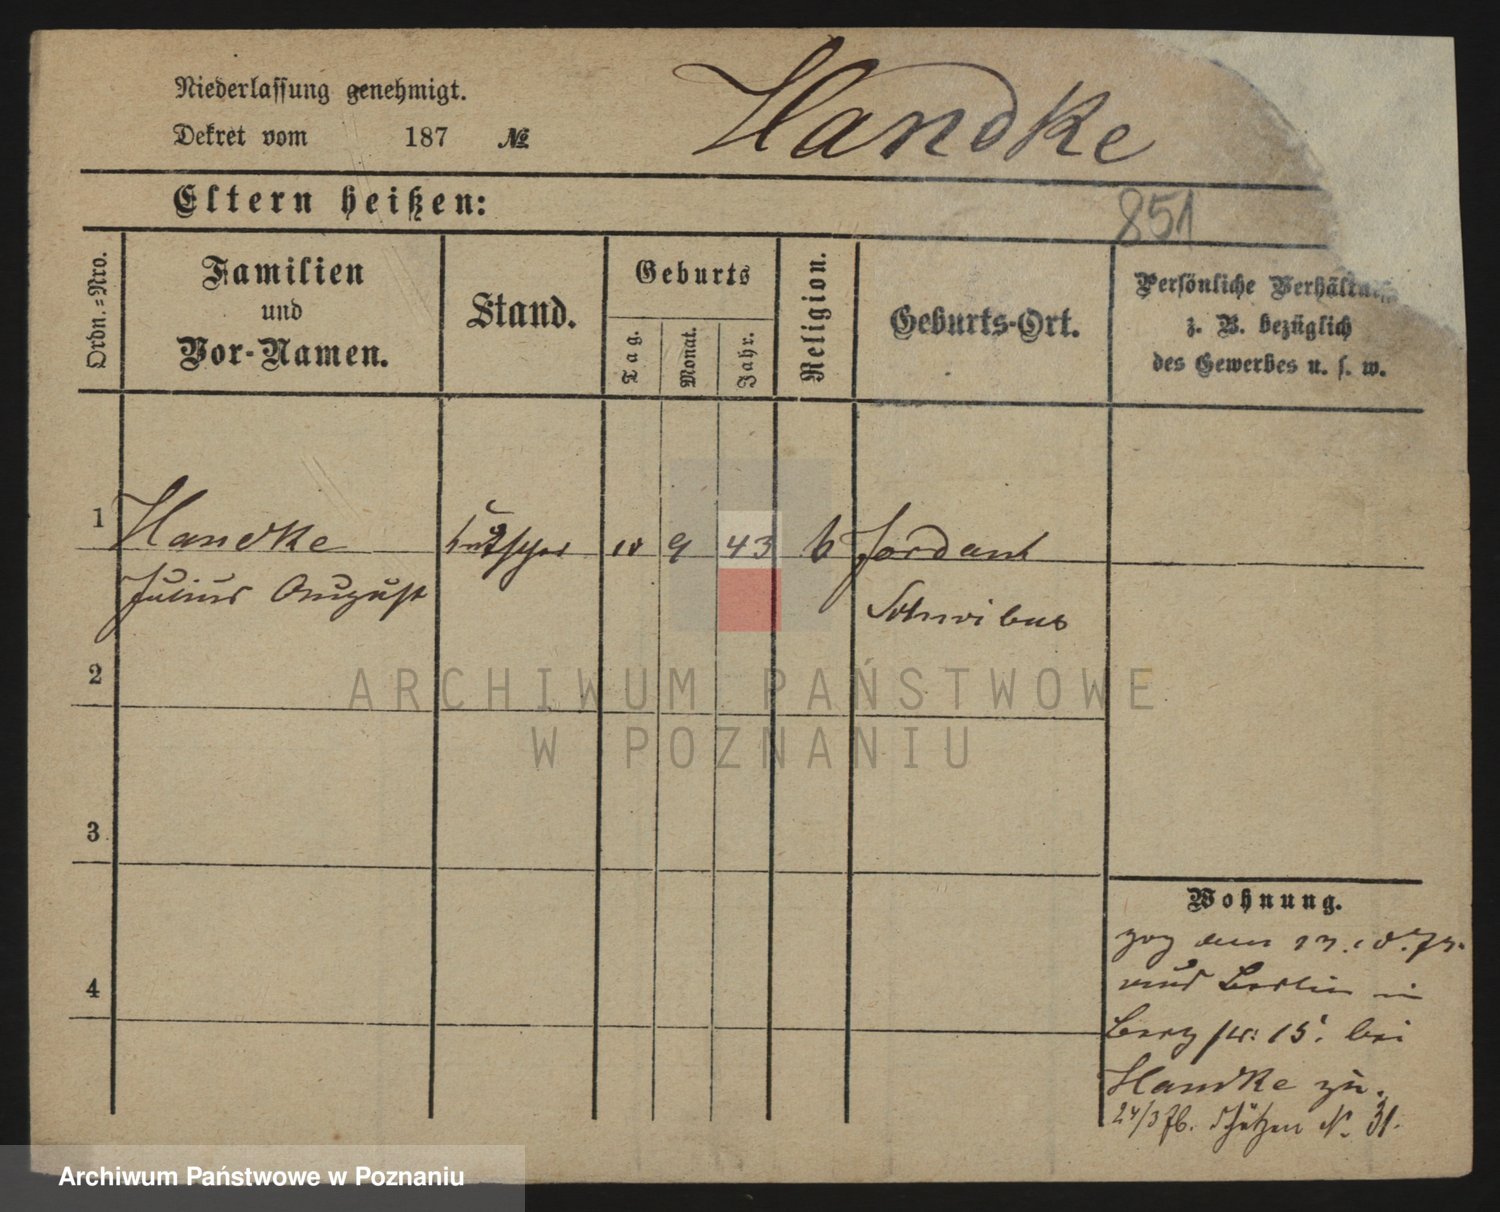 Niederlassung genehmigt.
Dekret vom 187 №
Handke
Eltern heißen:
851
Ordn.=Nro.
Familien
und
Vor-Namen.
Stand.
Geburts
Tag.
Monat.
Jahr.
Religion.
Geburts-Ort.
Persönliche
z. B. bezüglich
des Gewerbes u. s. w.
1 Handke Kutscher 10 9 43 Jordan
Julius August Schwibus
2
ARCHIWUM PAŃSTWOWE
W POZNANIU
3
Wohnung.
zog am
aus Berlin in
Berg str: 15. bei
4
Handke zu.
24/3 76. Schützen N. 31.
Archiwum Państwowe w Poznaniu